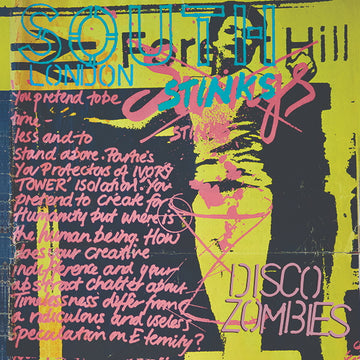 SOUTH
LONDON
STINKS
Hill
STINKS
You pretend to be
time
less and to
stand above. Parties
You Protectors of IVORY
TOWER' isolation. You
pretend to create for
Humanity but where is
the human being. How
does your creative
indifference and your
abstract chatter about
Timelessness differ from
a ridiculous and useless
speculation on Eternity?
DISCO
ZOMBIES